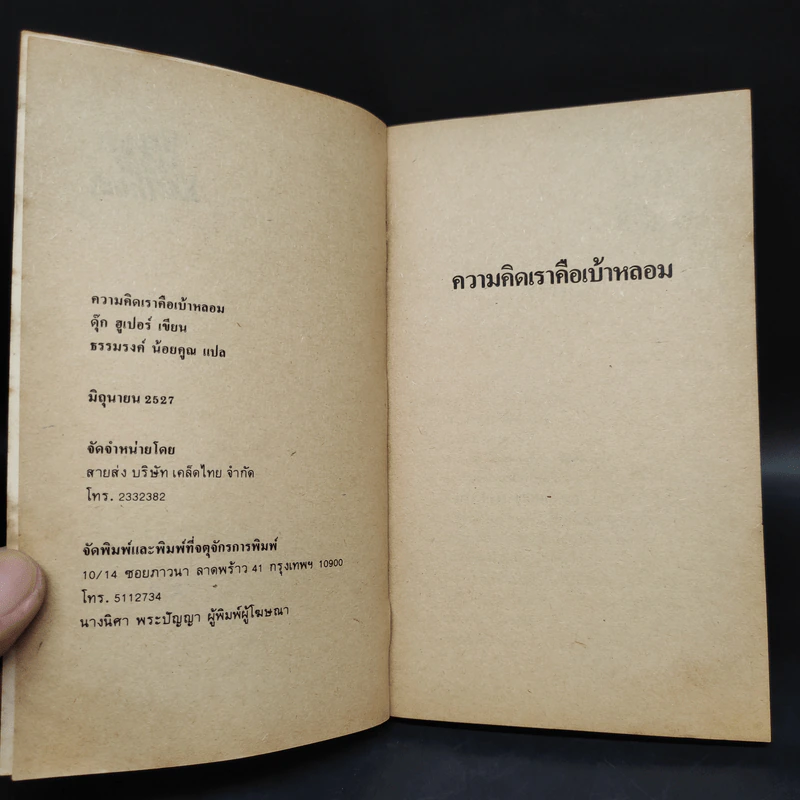 ความคิดเราคือเบ้าหลอม
ดุ๊ก ฮูเปอร์ เขียน
ธรรมรงค์ น้อยคูณ แปล
มิถุนายน 2527
จัดจำหน่ายโดย
สายส่ง บริษัท เคล็ดไทย จำกัด
โทร. 2332382
จัดพิมพ์และพิมพ์ที่จตุจักรการพิมพ์
10/14 ซอยภาวนา ลาดพร้าว 41 กรุงเทพฯ 10900
โทร. 5112734
นางนิศา พระปัญญา ผู้พิมพ์ผู้โฆษณา
ความคิดเราคือเบ้าหลอม